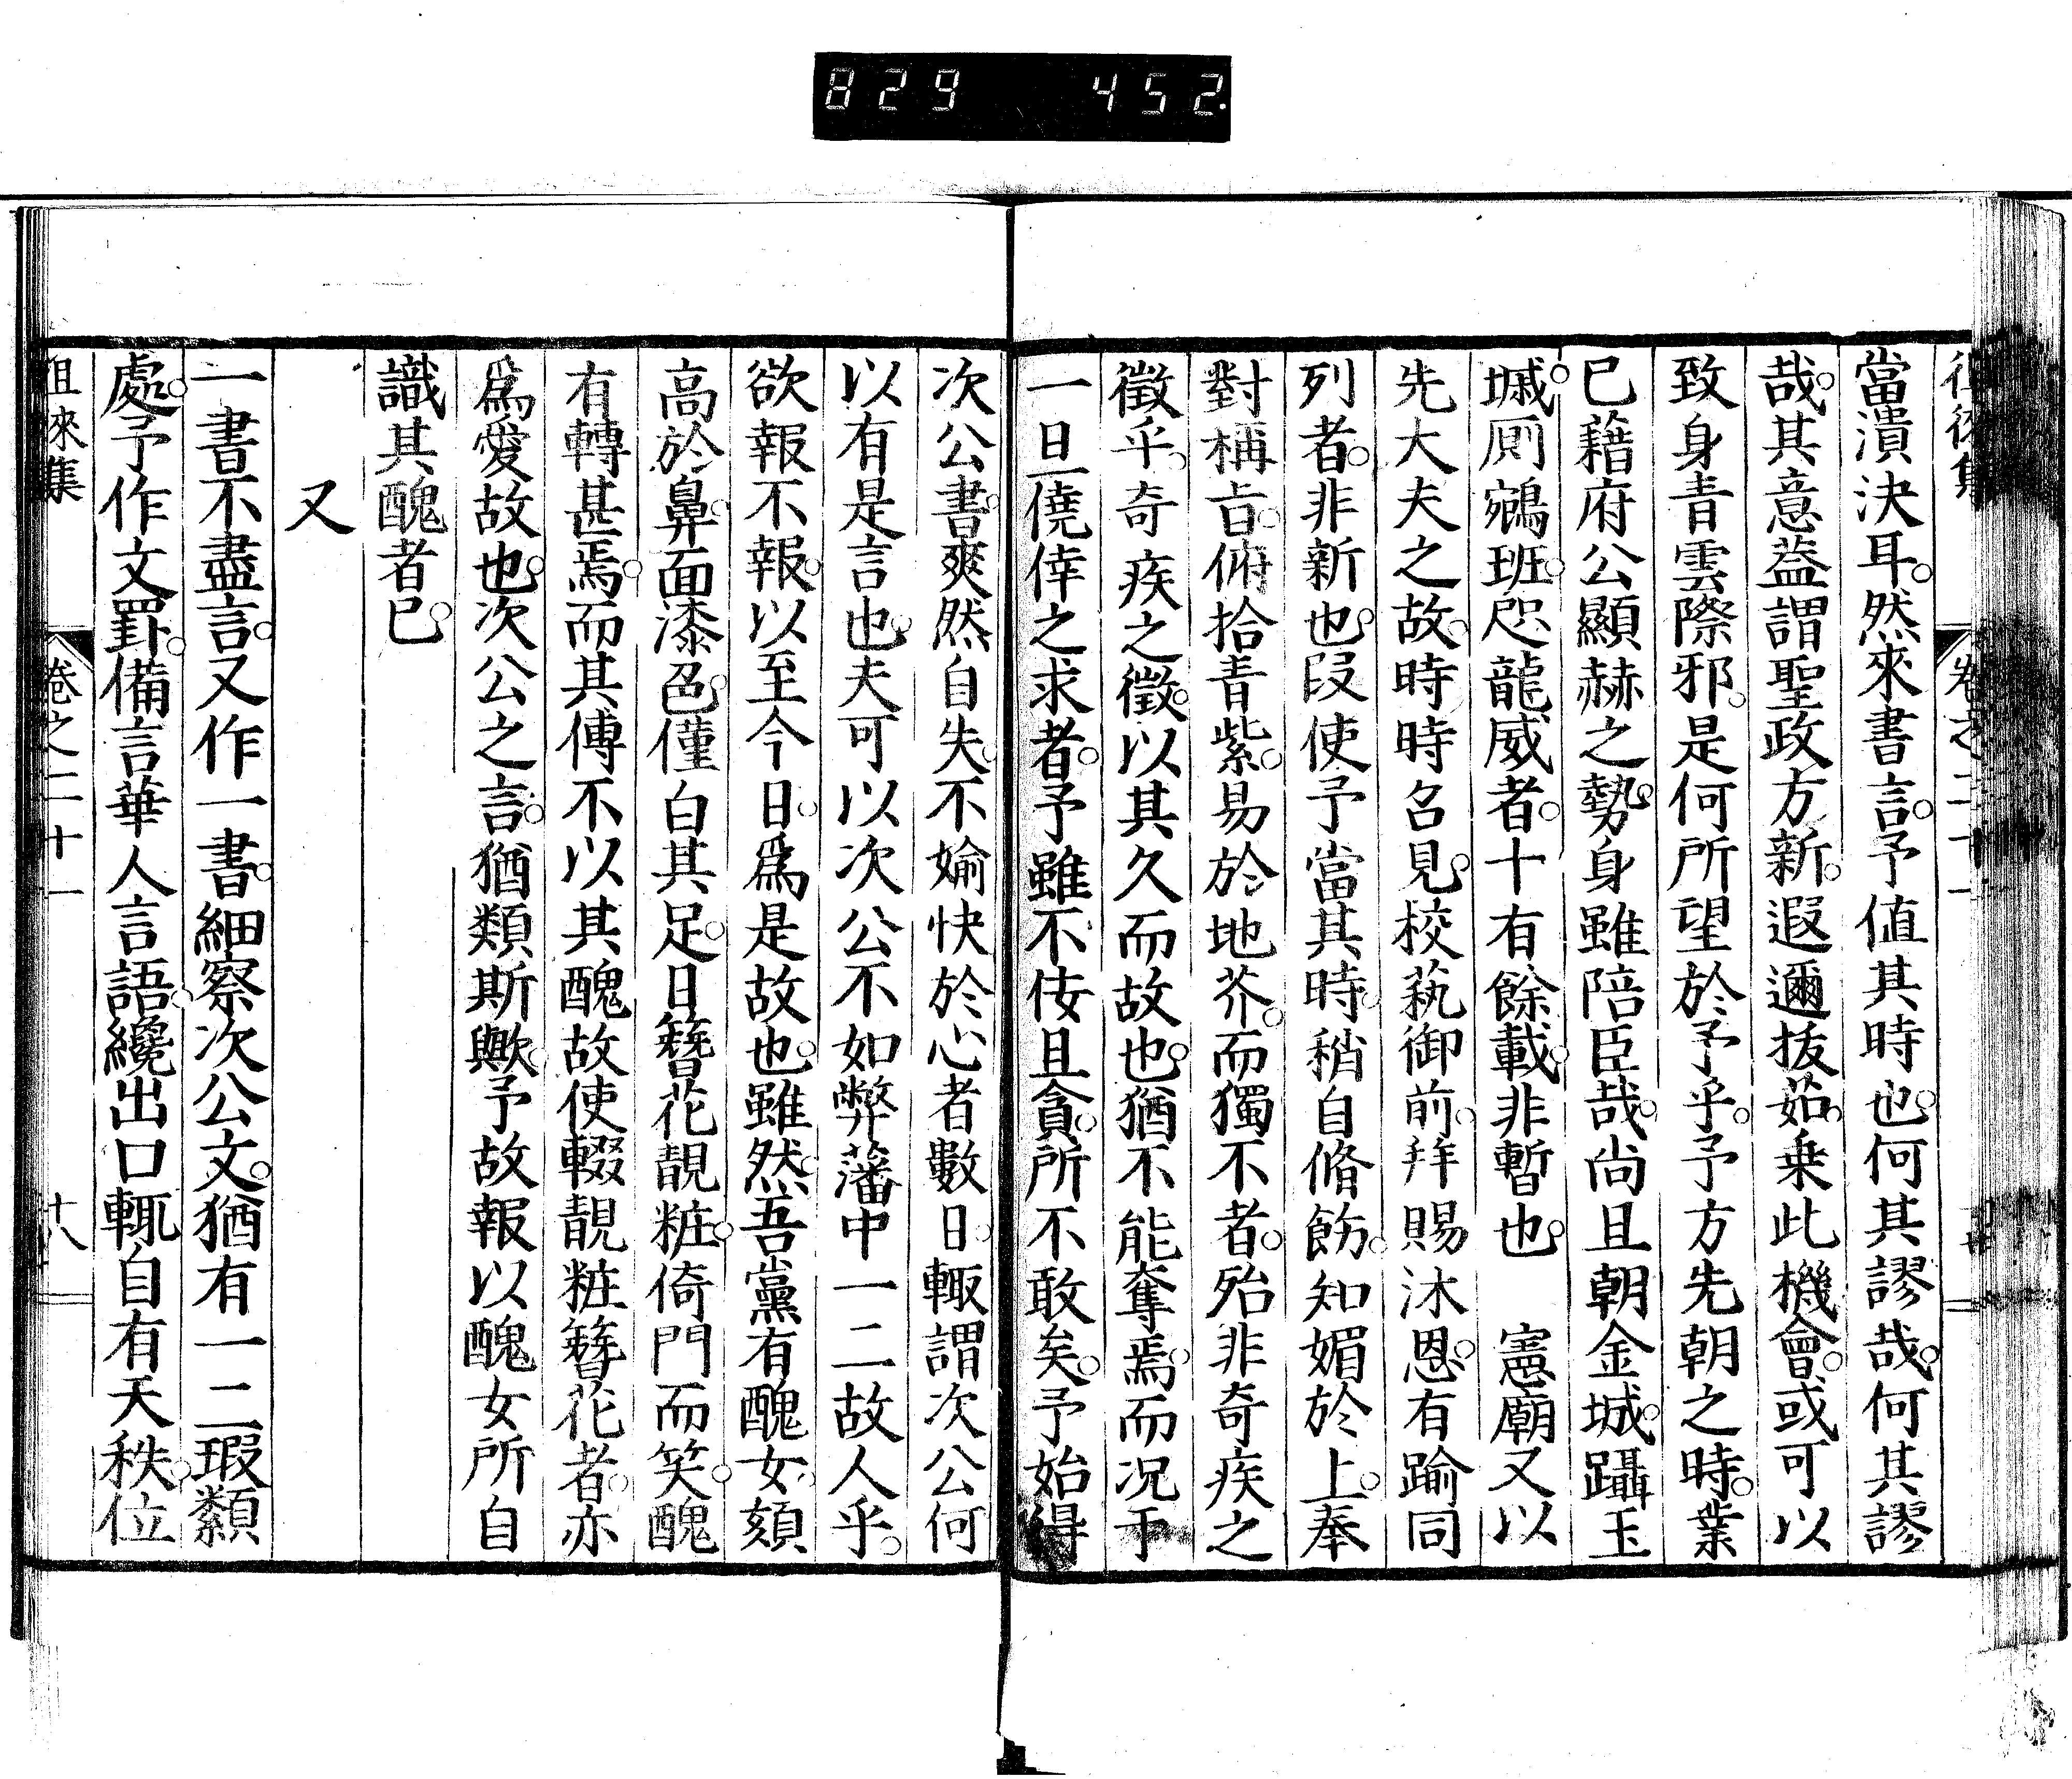 829 452.
當潰決耳。然來書言。予值其時也。何其謬哉。何其謬
哉。其意葢謂聖政方新。遐邇拔茹。乗此機會。或可以
致身青雲際邪。是何所望於予乎。予方先朝之時。業
已藉府公顯赫之勢。身雖陪臣哉。尚且朝金城。躡玉
墄。厠鵷班。咫龍威者。十有餘載。非暫也。　憲廟又以
先大夫之故。時時召見。校蓺御前。拜賜沐恩。有踰同
列者。非新也。段使予當其時。稍自脩飭。知媚於上。奉
對稱旨。俯拾青紫。易於地芥。而獨不者。殆非奇疾之
徵乎。奇疾之徵。以其久而故也。猶不能奪焉。而況于
一旦僥倖之求者。予雖不佞且貪。所不敢矣。予始得
次公書。爽然自失。不媮快於心者數日。輙謂次公何
以有是言也。夫可以次公不如弊藩中一二故人乎。
欲報不報。以至今日。爲是故也。雖然。吾黨有醜女。頦
高於鼻。面漆色。僅白其足。日簪花靚粧。倚門而笑。醜
有轉甚焉。而其傅不以其醜故使輟靚粧簪花者。亦
爲愛故也。次公之言。猶類斯歟。予故報以醜女所自
識其醜者已。
又
一書不盡言。又作一書。細察次公文。猶有一二瑕纇
處。予作文罫。備言華人言語。纔出口輒自有天秩。位
徂徠集　卷之二十一　十八